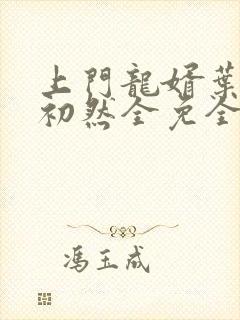 上門龍婿葉
初然全免全
馮玉成